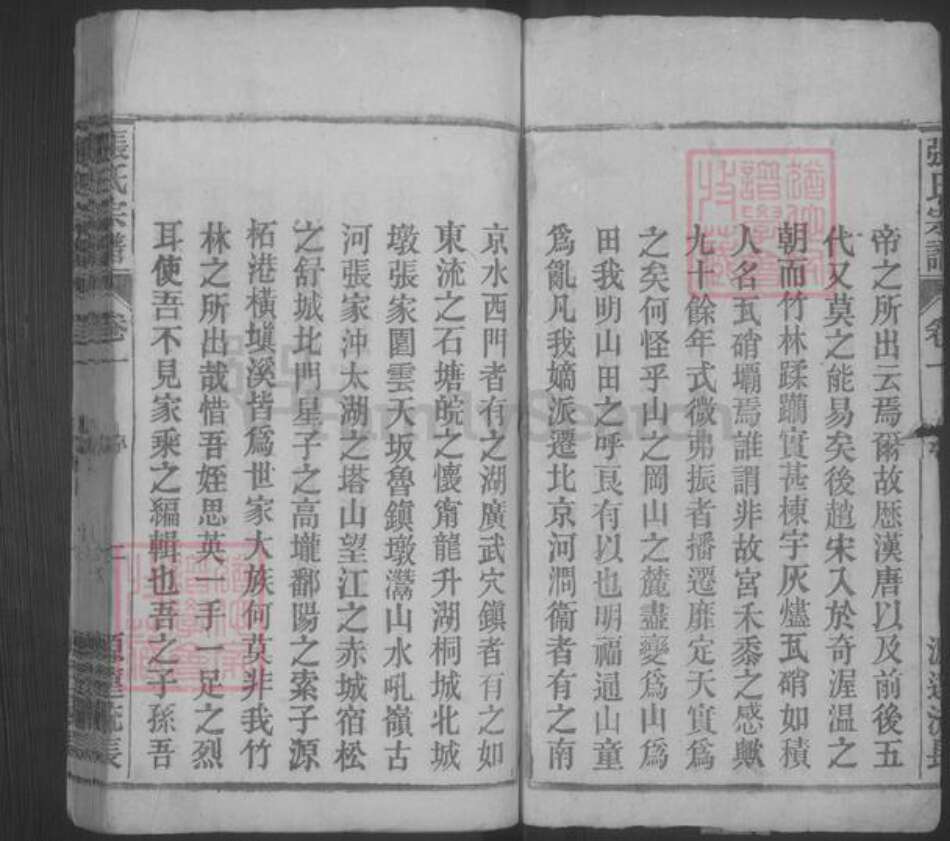 張氏宗譜
卷一
源遠流長
帝之所出云焉爾故歷漢唐以及前後五
代又莫之能易矣後趙宋入於奇渥溫之
朝而竹林蹂躪實甚棟宇灰燼瓦硝如積
人名瓦硝壩焉誰謂非故宮禾黍之感歟
九十餘年式微弗振者播遷靡定天實爲
之矣何怪乎山之岡山之麓盡變爲山爲
田我明山田之呼良有以也明福通山童
爲亂凡我嫡派遷北京河澗衞者有之南
京水西門者有之湖廣武穴鎭者有之如
東流之石塘皖之懷甯龍升湖桐城北城
墩張家園雲天坂魯鎭墩灊山水吼嶺古
河張家沖太湖之塔山望江之赤城宿松
之舒城北門星子之高壠鄱陽之索子源
柘港橫塡溪皆爲世家大族何莫非我竹
林之所出哉惜吾姪思英一手一足之烈
耳使吾不見家乘之編輯也吾之子孫吾
張氏宗譜
卷一
序
二
源遠流長
FamilySearch